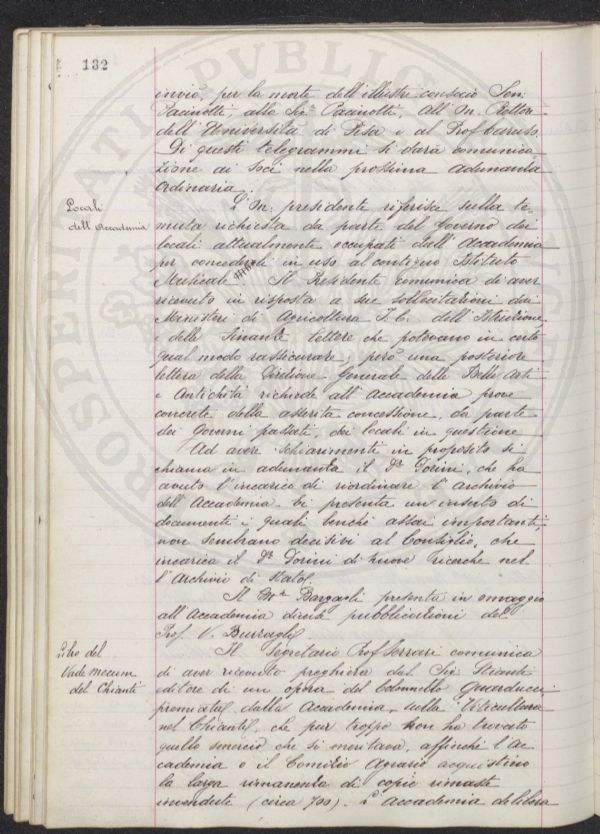 132
inviò, per la morte dell'illustre consocio Sen.
Pacinotti, alla Sig.ra Pacinotti, all'On. Rettore
dell'Università di Pisa e al Prof Caruso.
Di questi telegrammi si darà comunica
zione ai soci nella prossima adunanza
ordinaria.
Locali
dell'Accademia
L'On: presidente riferisce sulla te-
muta richiesta da parte del Governo dei
locali attualmente occupati dall'Accademia
per concederli in uso al contiguo Istituto
Musicale. Il Presidente comunica di aver
ricevuto in risposta a sue sollecitazioni dai
Ministeri di Agricoltura I. C. dell'Istruzione,
e delle Finanze lettere che potevano in certo
qual modo rassicurare, però una posteriore
lettera della Direzione Generale delle Belle Arti
e Antichità richiede all'Accademia prove
concrete della asserita concessione, da parte
dei Governi passati, dei locali in questione
Ad avere schiarimenti in proposito si
chiama in adunanza il Dr Dorini, che ha
avuto l'incarico di riordinare l'archivio
dell'Accademia. Ei presenta un inserto di
documenti i quali benchè assai importanti,
non sembrano decisivi al Consiglio, che
incarica il Dr Dorini di nuove ricerche nel
l'Archivio di Stato.
Il Mse Bargagli presenta in omaggio
all'Accademia diverse pubblicazioni del
Prof. V.
Libro del
Vade mecum
del Chianti
Il Segretario Prof Serrari comunica
di aver ricevuto preghiera dal Sig.
editore di un opera del Colonnello Guarducci
premiata dalla Accademia, sulla Viticultura
nel Chianti, che pur troppo non ha trovato
quello smercio che si meritava, affinchè l'Ac
cademia e il Comizio Agrario acquistino
la larga rimanenza di copie rimaste
invendute (circa 700). L'Accademia delibera